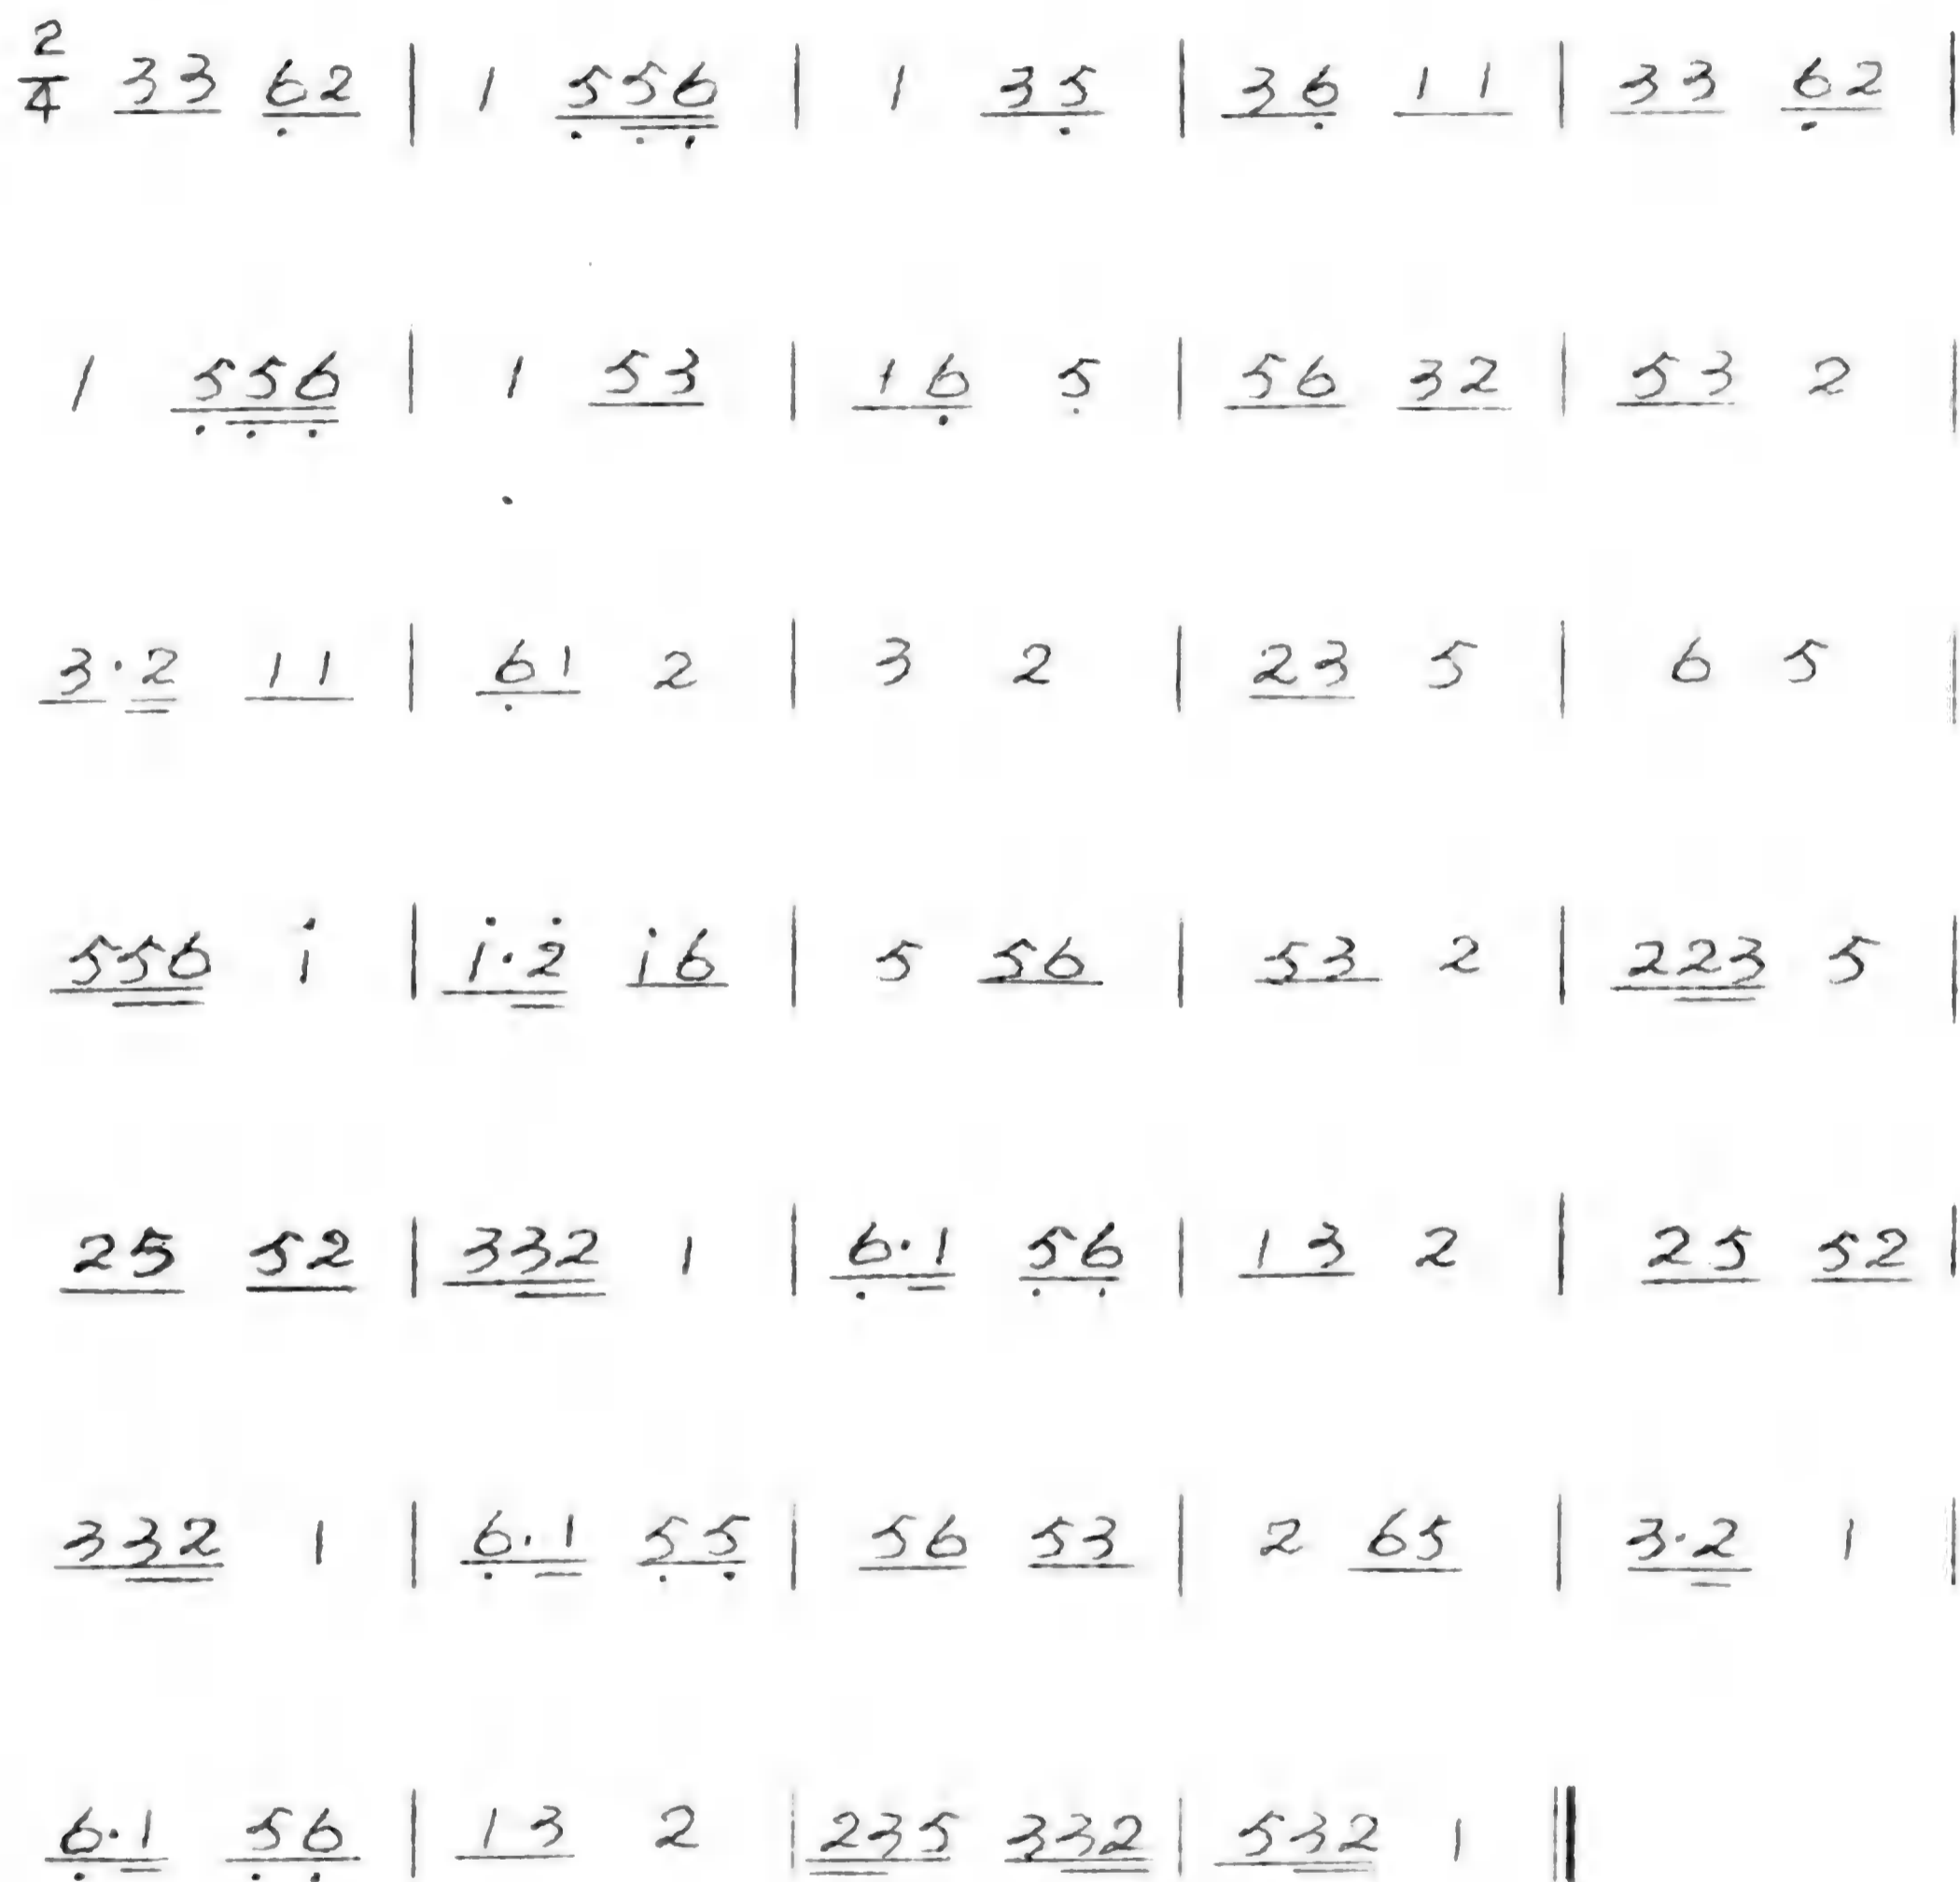 2/4 33 6̣2 | 1 5̣5̣6̣ | 1 35̣ | 36̣ 11 | 33 6̣2 |
1 5̣5̣6̣ | 1 53 | 16̣ 5̣ | 56 32 | 53 2 |
3·2 11 | 6̣1 2 | 3 2 | 23 5 | 6 5 |
556 1̇ | 1̇·2̇ 1̇6 | 5 56 | 53 2 | 223 5 |
25 52 | 332 1 | 6̣·1 5̣6̣ | 13 2 | 25 52 |
332 1 | 6̣·1 5̣5̣ | 56 53 | 2 65 | 3·2 1 |
6̣·1 5̣6̣ | 13 2 | 235 332 | 532 1 ‖